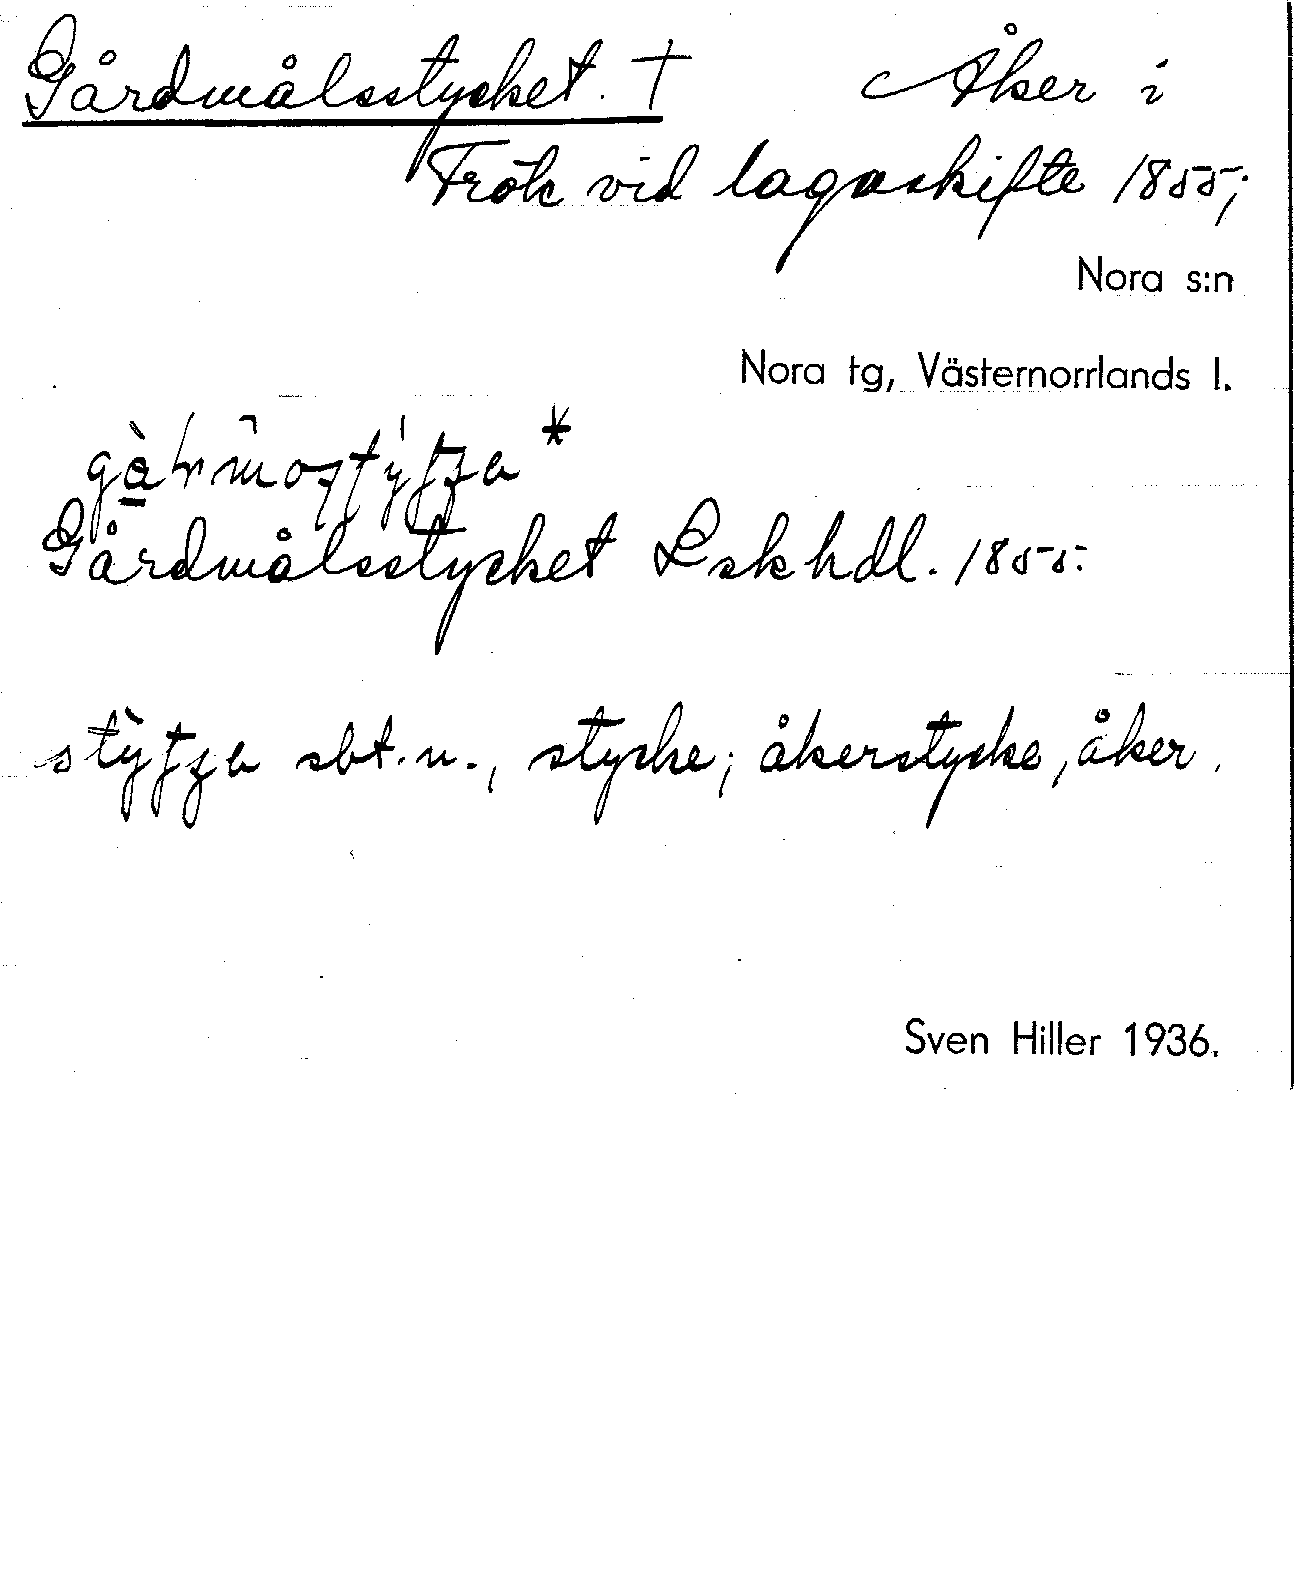 Gårdmålsstycket. † Åker i
Frök vid lagaskifte 1855;
Nora s:n
Nora tg, Västernorrlands l.
Gårdmålsstycket Lskhdl. 1855.
sbt. n., stycke; åkerstycke, åker.
Sven Hiller 1936.